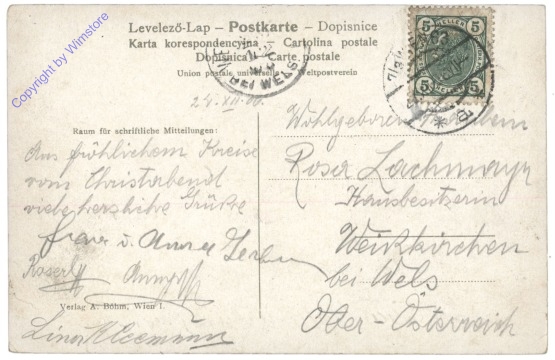 Levelező-Lap – Postkarte – Dopisnice
Karta korespondencyjna – Cartolina postale
Dopisnica – Carte postale
Union postale universelle – Weltpostverein
BEI WELS
5 HELLER 5
5 5
Copyright by Wimstore
24. XII. 06.
Raum für schriftliche Mitteilungen:
Aus fröhlichem Kreise
vom Christabend
viele herzliche Grüße
Franz u. Anna
Verlag A. Böhm, Wien I.
Wohlgeboren
Rosa Lachmayr
Hausbesitzerin
Weißkirchen
bei Wels
Ober-Österreich